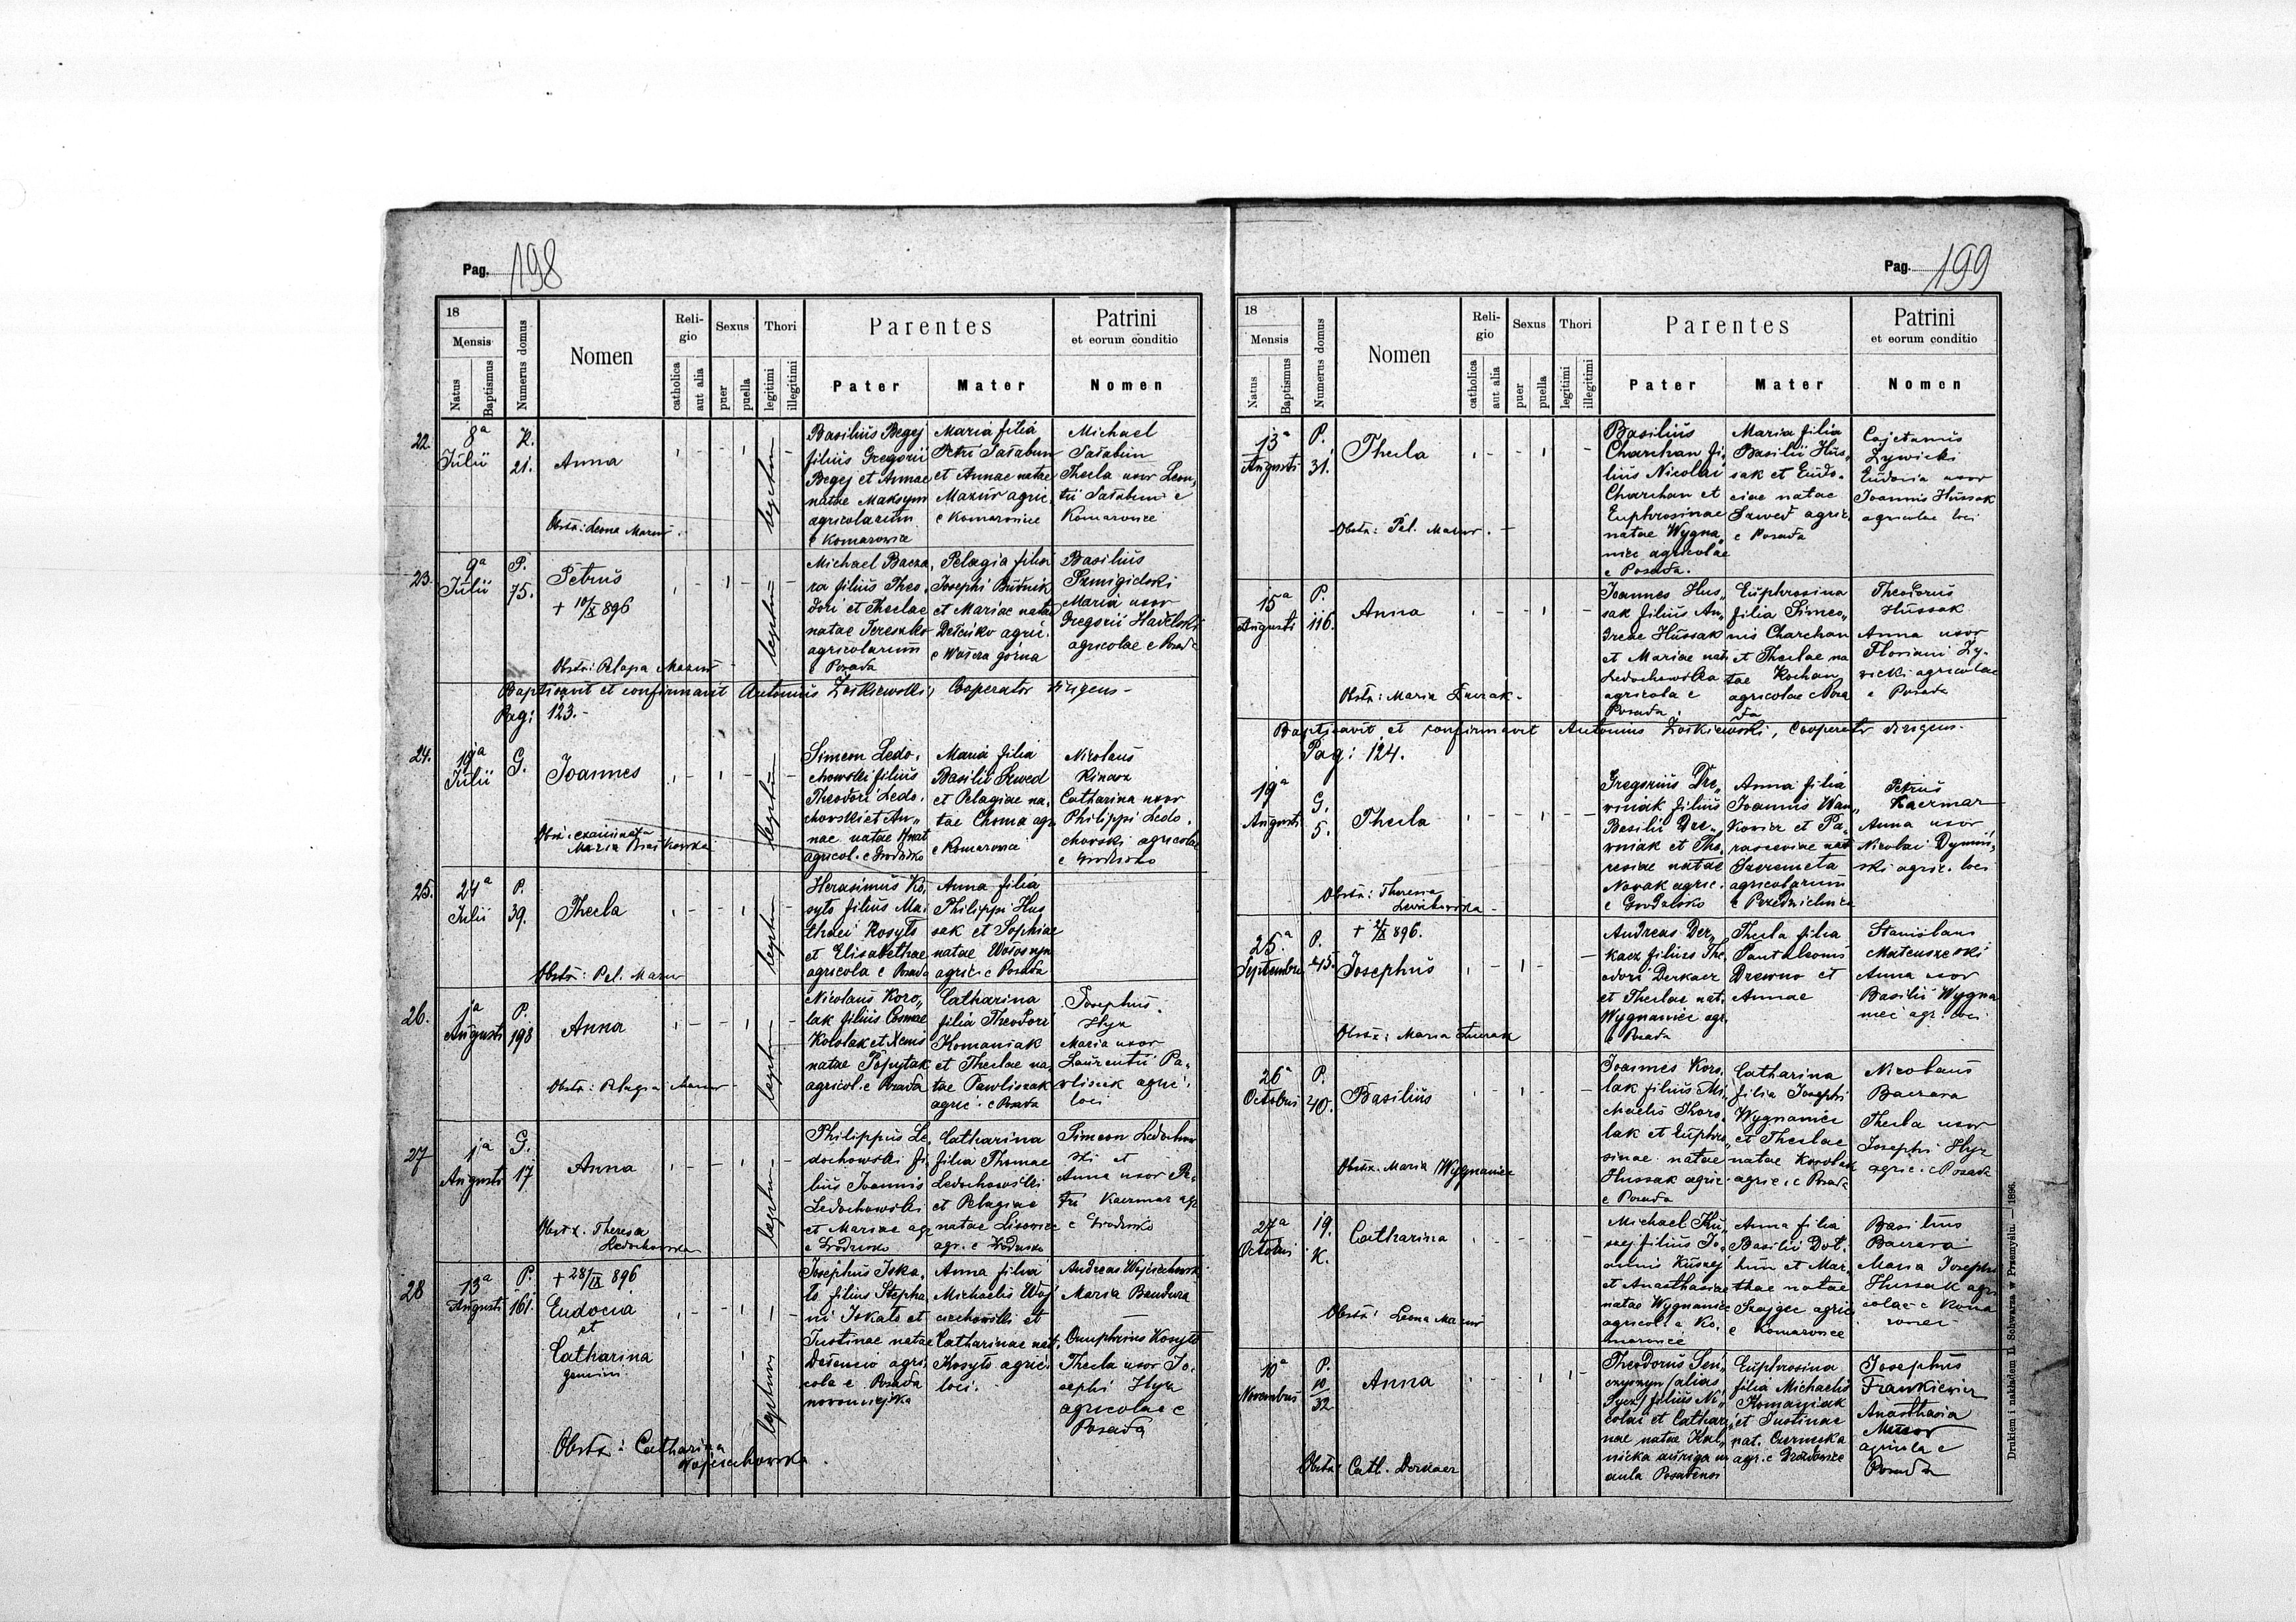 Pag. 198
18
Mensis
Natus
Baptismus
Numerus domus
Nomen
Reli-
gio
catholica
aut alia
Sexus
puer
puella
Thori
legitimi
illegitimi
Parentes
Pater
Mater
Patrini
et eorum conditio
Nomen
22.
8ª
Julii
K.
21.
Anna
Obstx: Leona Mazur
legitimi
Basilius Begej
filius Gregorii
Begej et Annae
natae Maksym
agricolarum
e Komarowice
Maria filia
Petri Sałabun
et Annae natae
Mazur agric.
e Komarowice
Michael
Sałabun
Thecla uxor Leon„
tii Sałabun e
Komarowice
23.
9ª
Julii
P.
75.
Petrus
+ 10/X 896
Obstx: Pelagia Mazur
Michael Bacza„
ra filius Theo„
dori et Theclae
natae Tereszko
agricolarum
e Posada
Pelagia filia
Josephi Budnik
et Mariae natae
Deńko agric.
e Wołcza górna
Basilius
Szmigielski
Maria uxor
Gregorii
agricolae e Posada
Baptisavit et confirmavit Antonius Zołkiewski, Cooperator dirigens -
Pag: 123.-
24.
19ª
Julii
G.
Joannes
Obst. examinata
Maria
Simeon Ledo„
chowski filius
Theodori Ledo„
chowski et An„
nae natae Hnat
agricol. e Grodzisko
Maria filia
Basilii Szwed
et Pelagiae na„
tae Choma agr.
e Komarowice
Nicolaus
Kindra
Catharina uxor
Philippi Ledo„
chowski agricolae
e Grodzisko
25.
24ª
Julii
P.
39.
Thecla
Obstx: Pel. Mazur
Herasimus Ko„
syło filius Ma„
thaei Kosyło
et Elisabethae
agricola e Posada
Anna filia
Philippi Hus
sak et Sophiae
natae Wołoszyn
agric. e Posada
26.
1ª
Augusti
P.
198
Anna
Obstx: Pelagia Mazur
Nicolaus Koro„
lak filius Cosmae
Korolak et
natae Popytak
agricol. e Posada
Catharina
filia Theodori
Komaniak
et Theclae na„
tae Pawliszak
agric. e Posada
Josephus
Hyz
Maria uxor
Laurentii Pa„
wliszek agric.
loci
27
1ª
Augusti
G.
17
Anna
Obstx. Theresa
Ledochowska
Philippus Le„
dochowski fi„
lius Joannis
Ledochowski
et Mariae agr.
e Grodzisko
Catharina
filia Thomae
Ledochowski
et Pelagiae
natae Lisowiec
agr. e Grodzisko
Simeon Ledochow
ski et
Anna uxor Pe„
tri Kaczmar agr.
e Grodzisko
28
13ª
Augusti
P.
161.
+ 28/IX 896
Eudocia
et
Catharina
gemini
Obstx: Catharina
Wojciechowska
Josephus Iska„
ło filius Stepha„
ni Iskało et
Justinae natae
agri„
cola e Posada
nowomiejska
Anna filia
Michaelis Woj
ciechowski et
Catharinae nat.
Kosyło agric.
loci.
Andreas Wojciechowski
Maria Bandura
Onuphrius Kosyło
Thecla uxor Jo„
sephi Hyz
agricolae e
Posada
Pag. 199
18
Mensis
Natus
Baptismus
Numerus domus
Nomen
Reli-
gio
catholica
aut alia
Sexus
puer
puella
Thori
legitimi
illegitimi
Parentes
Pater
Mater
Patrini
et eorum conditio
Nomen
13ª
Augusti
P.
31.
Thecla
Obstx: Pel. Mazur.
Basilius
Charchan fi„
lius Nicolai
Charchan et
Euphrosinae
natae Wygna„
niec agricolae
e Posada.
Maria filia
Basilii Hus„
sak et Eudo„
ciae natae
Szwed agric.
e Posada
Cajetanus
Zywicki
Eudocia uxor
Joannis Hussak
agricolae loci
15ª
Augusti
P.
116.
Anna
Obstx: Maria
Joannes Hus„
sak filius An„
dreae Hussak
et Mariae nat.
Ledochowska
agricola e
Posada.
Euphrosina
filia Simeo„
nis Charchan
et Theclae na
tae Kochan
agricolae e Posa
da
Theodorus
Hussak
Anna uxor
Floriani Zy„
wicki agricolae
e Posada
Baptisavit et confirmavit Antonius Zołkiewski, Cooperator dirigens.
Pag: 124.
19ª
Augusti
G.
5.
Thecla
Obstx: Theresia
Gregorius Dre„
wniak filius
Basilii Dre„
wniak et The„
resiae natae
Nowak agric.
e Grodzisko
Anna filia
Joannis Wan„
kowicz et Pa„
rasceviae nat
Szeremeta
agricolarum
e Przedzielnica
Petrus
Kaczmar
Anna uxor
Nicolai Dymiń„
ski agric. loci
25.ª
Septembris
P.
45.
+ 2/X 896.
Josephus
Obstx: Maria
Andreas Der„
kacz filius The„
odori Derkacz
et Theclae nat.
Wygnaniec agr.
e Posada
Thecla filia
Pantaleonis
Drewno et
Annae
Stanislaus
Mateuszewski
Anna uxor
Basilii Wygna
niec agr. loci
26ª
Octobris
P.
40.
Basilius
Obstx. Maria Wygnaniec
Joannes Koro„
lak filius Mi„
chaelis Koro„
lak et Euphro„
sinae natae
Hussak agric.
e Posada
Catharina
filia Josephi
Wygnaniec
et Theclae
natae Korolak
agric. e Posada
Nicolaus
Baczara
Thecla uxor
Josephi Hyz
agric. e Posada
27ª
Octobris
19.
K.
Catharina
Obstx: Leona Mazur
Michael Ku„
szej filius Jo„
annis Kuszej
et Anasthasiae
natae Wygnaniec
agricol. e Ko„
marowice
Anna filia
Basilii Doł„
hun et Mar„
thae natae
Szajgec agric.
e Komarowice
Basilius
Baczara
Maria Josephi
Hussak agri
colae e Koma
rowice
10ª
Novembris
P.
10
32
Anna
Obstx: Cath. Derkacz
Theodorus Sen„
czyszyn (alias
Sycz) filius Ni„
colai et Cathari„
nae natae Kal„
nicka auriga in
aula Posadensi
Euphrosina
filia Michaelis
Komaniak
et Justinae
nat. Czernecka
agr. e
Josephus
Frankiewicz
Anasthasia
Mazur
agricola e
Posada
Drukiem i nakładem D. Schwarza w Przemyślu. — 1896.